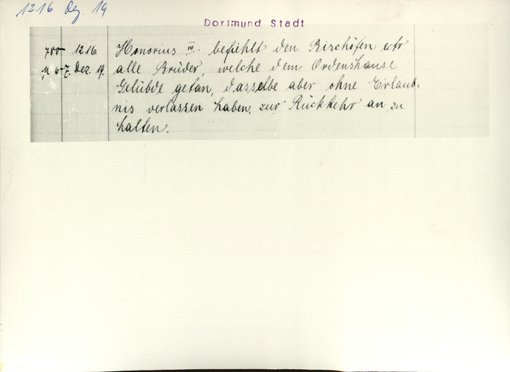 1216 Dez 19
Dortmund Stadt
700 1216 Honorius III. befiehlt den Bischöfen etc
7. Dez. 19. alle Brüder, welche dem Ordenshause
Gelübde getan, dasselbe aber ohne Erlaub-
nis verlassen haben, zur Rückkehr an zu
halten.